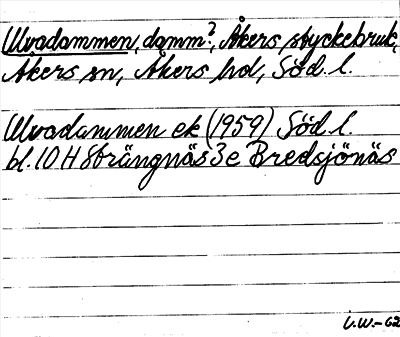 Ulvadammen, damm?, Åkers styckebruk,
Åkers sn, Åkers hd, Söd. l.
Ulvadammen ek (1959) Söd. l.
bl. 10 H Strängnäs 3 e Bredsjönäs
L.W.-62